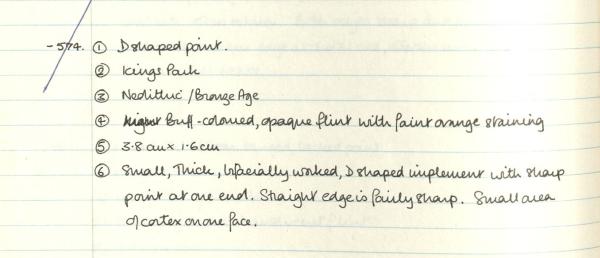 -574. ① D shaped point.
② Kings Park
③ Neolithic / Bronze Age
④ Buff-coloured, opaque flint with faint orange staining
⑤ 3.8 cm x 1.6 cm
⑥ Small, Thick, bifacially worked, D shaped implement with sharp
point at one end. Straight edge is fairly sharp. Small area
of cortex on one face.